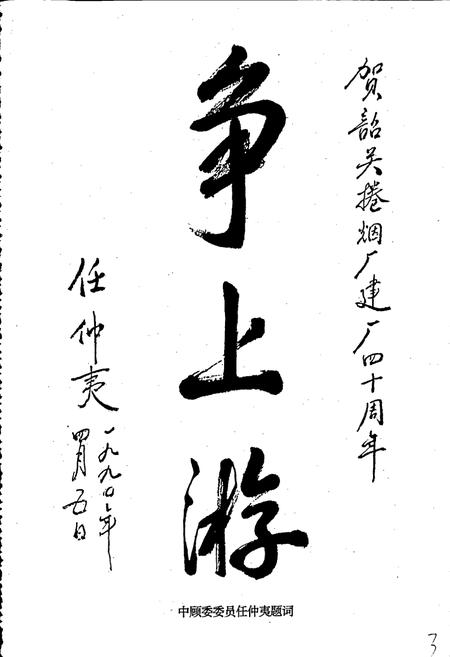 贺韶关捲烟厂建厂四十周年
争上游
任仲夷
一九九〇年
四月五日
中顾委委员任仲夷题词
3